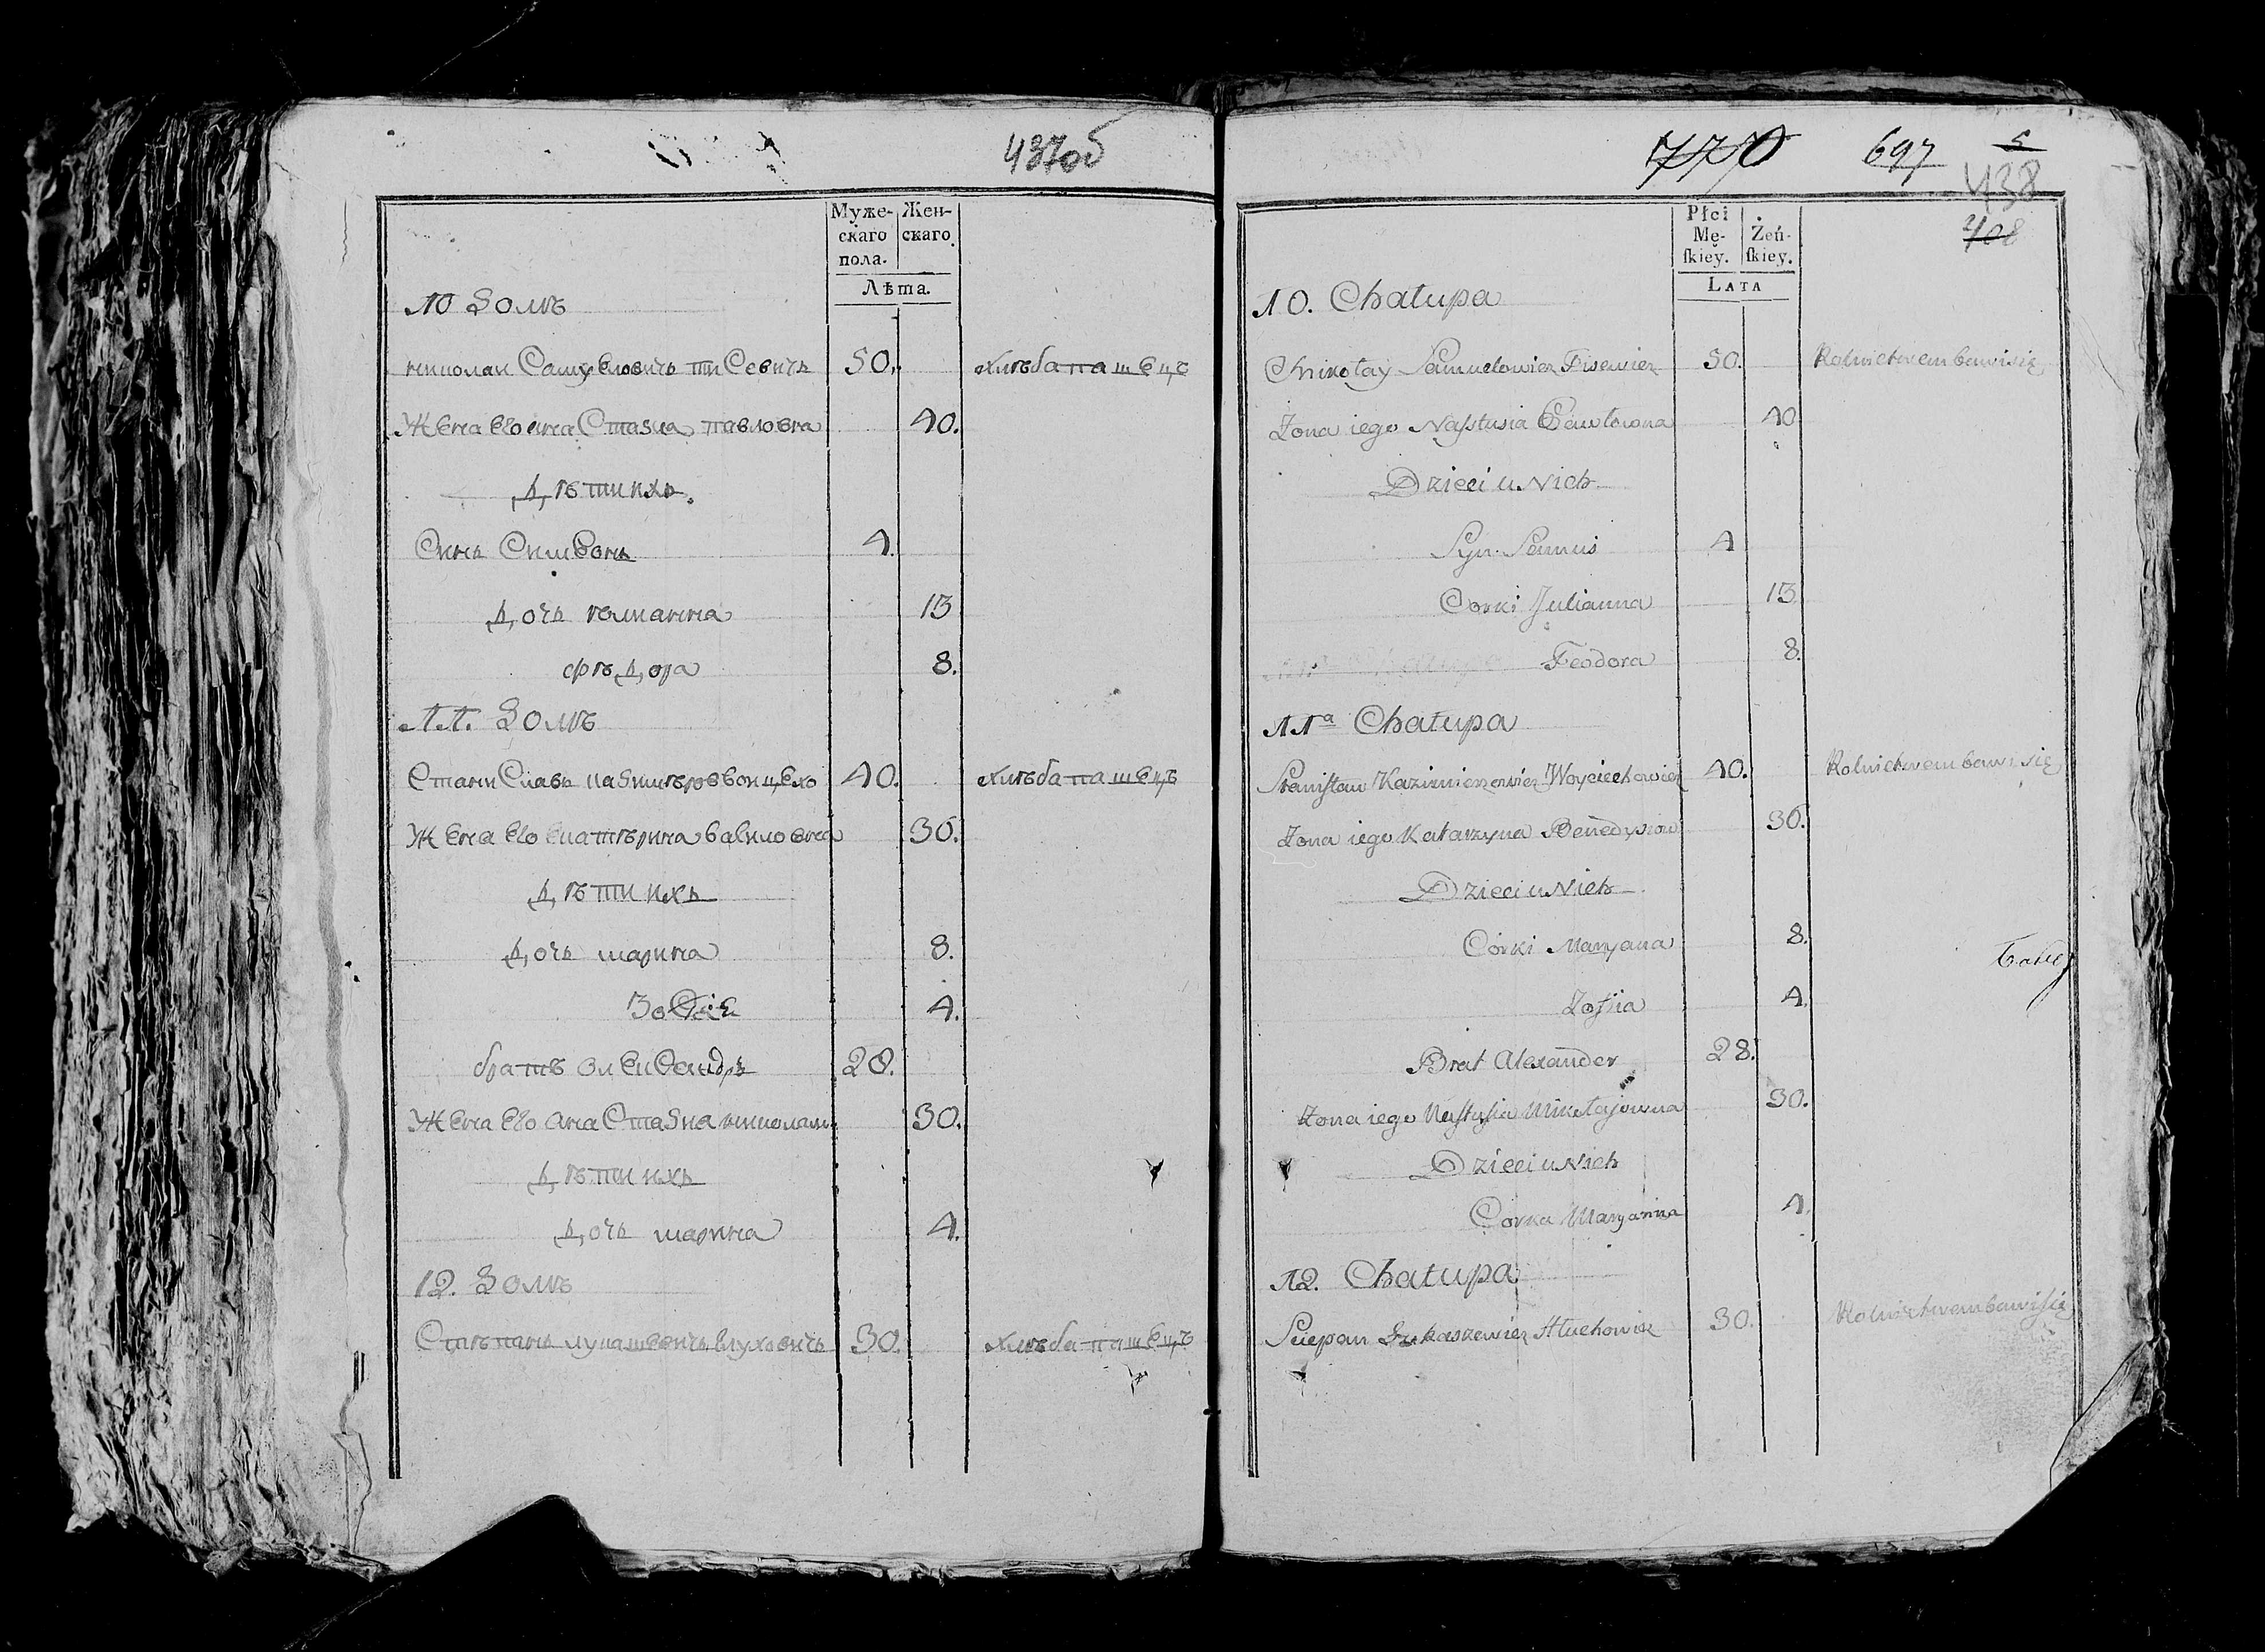 437об
Муже- Жен-
скаго скаго
пола.
Лѣта.
10 Домъ
николаи Самуеловичь тисевичь 50. хлѣба пашецъ
Жена его анастазиа павловна 40.
Дѣти ихъ.
Синь Симеонь 4.
Дочь юлианна 13
фѣдора 8.
11. Домъ
Станиславь казимѣров воицехо 40. хлѣба пашецъ
Жена его екатѣрина вавиловна 30.
Дѣти ихъ
Дочь марина 8.
Зофіе 4.
братъ олександръ 28.
Жена его анастазиа николаи 30.
Дѣти ихъ
Дочь марина 4.
12. Домъ
Стѣпань лукашевичь глуховичь 30. хлѣба пашецъ
770 697 5
438
408
Płci
Mę- Żeń-
ſkiey. ſkiey.
LATA
10. Chałupa
Mikołay Samuelowicz Fisewicz 50. Rolnictwem bawi się
Żona iego Naſtusia Pawłowna 40
Dzieci u Nich
Syn Semus 4
Corki Julianna 13
Feodora 8.
11a Chałupa
Staniſław Kazimierzowicz Woyciechowicz 40. Rolnictwem bawi się
Żona iego Katarzyna Benedysiow 30.
Dzieci u Nich
Córki Maryana 8.
Zofjia 4.
Brat Alexander 28.
Żona iego Naſtuſia Mikołajowna 30.
Dzieci u Nich
Corka Maryanna 4.
12. Chałupa
Sciepan Łukaszewicz Hłuchowicz 30. Rolnictwem bawi ſię